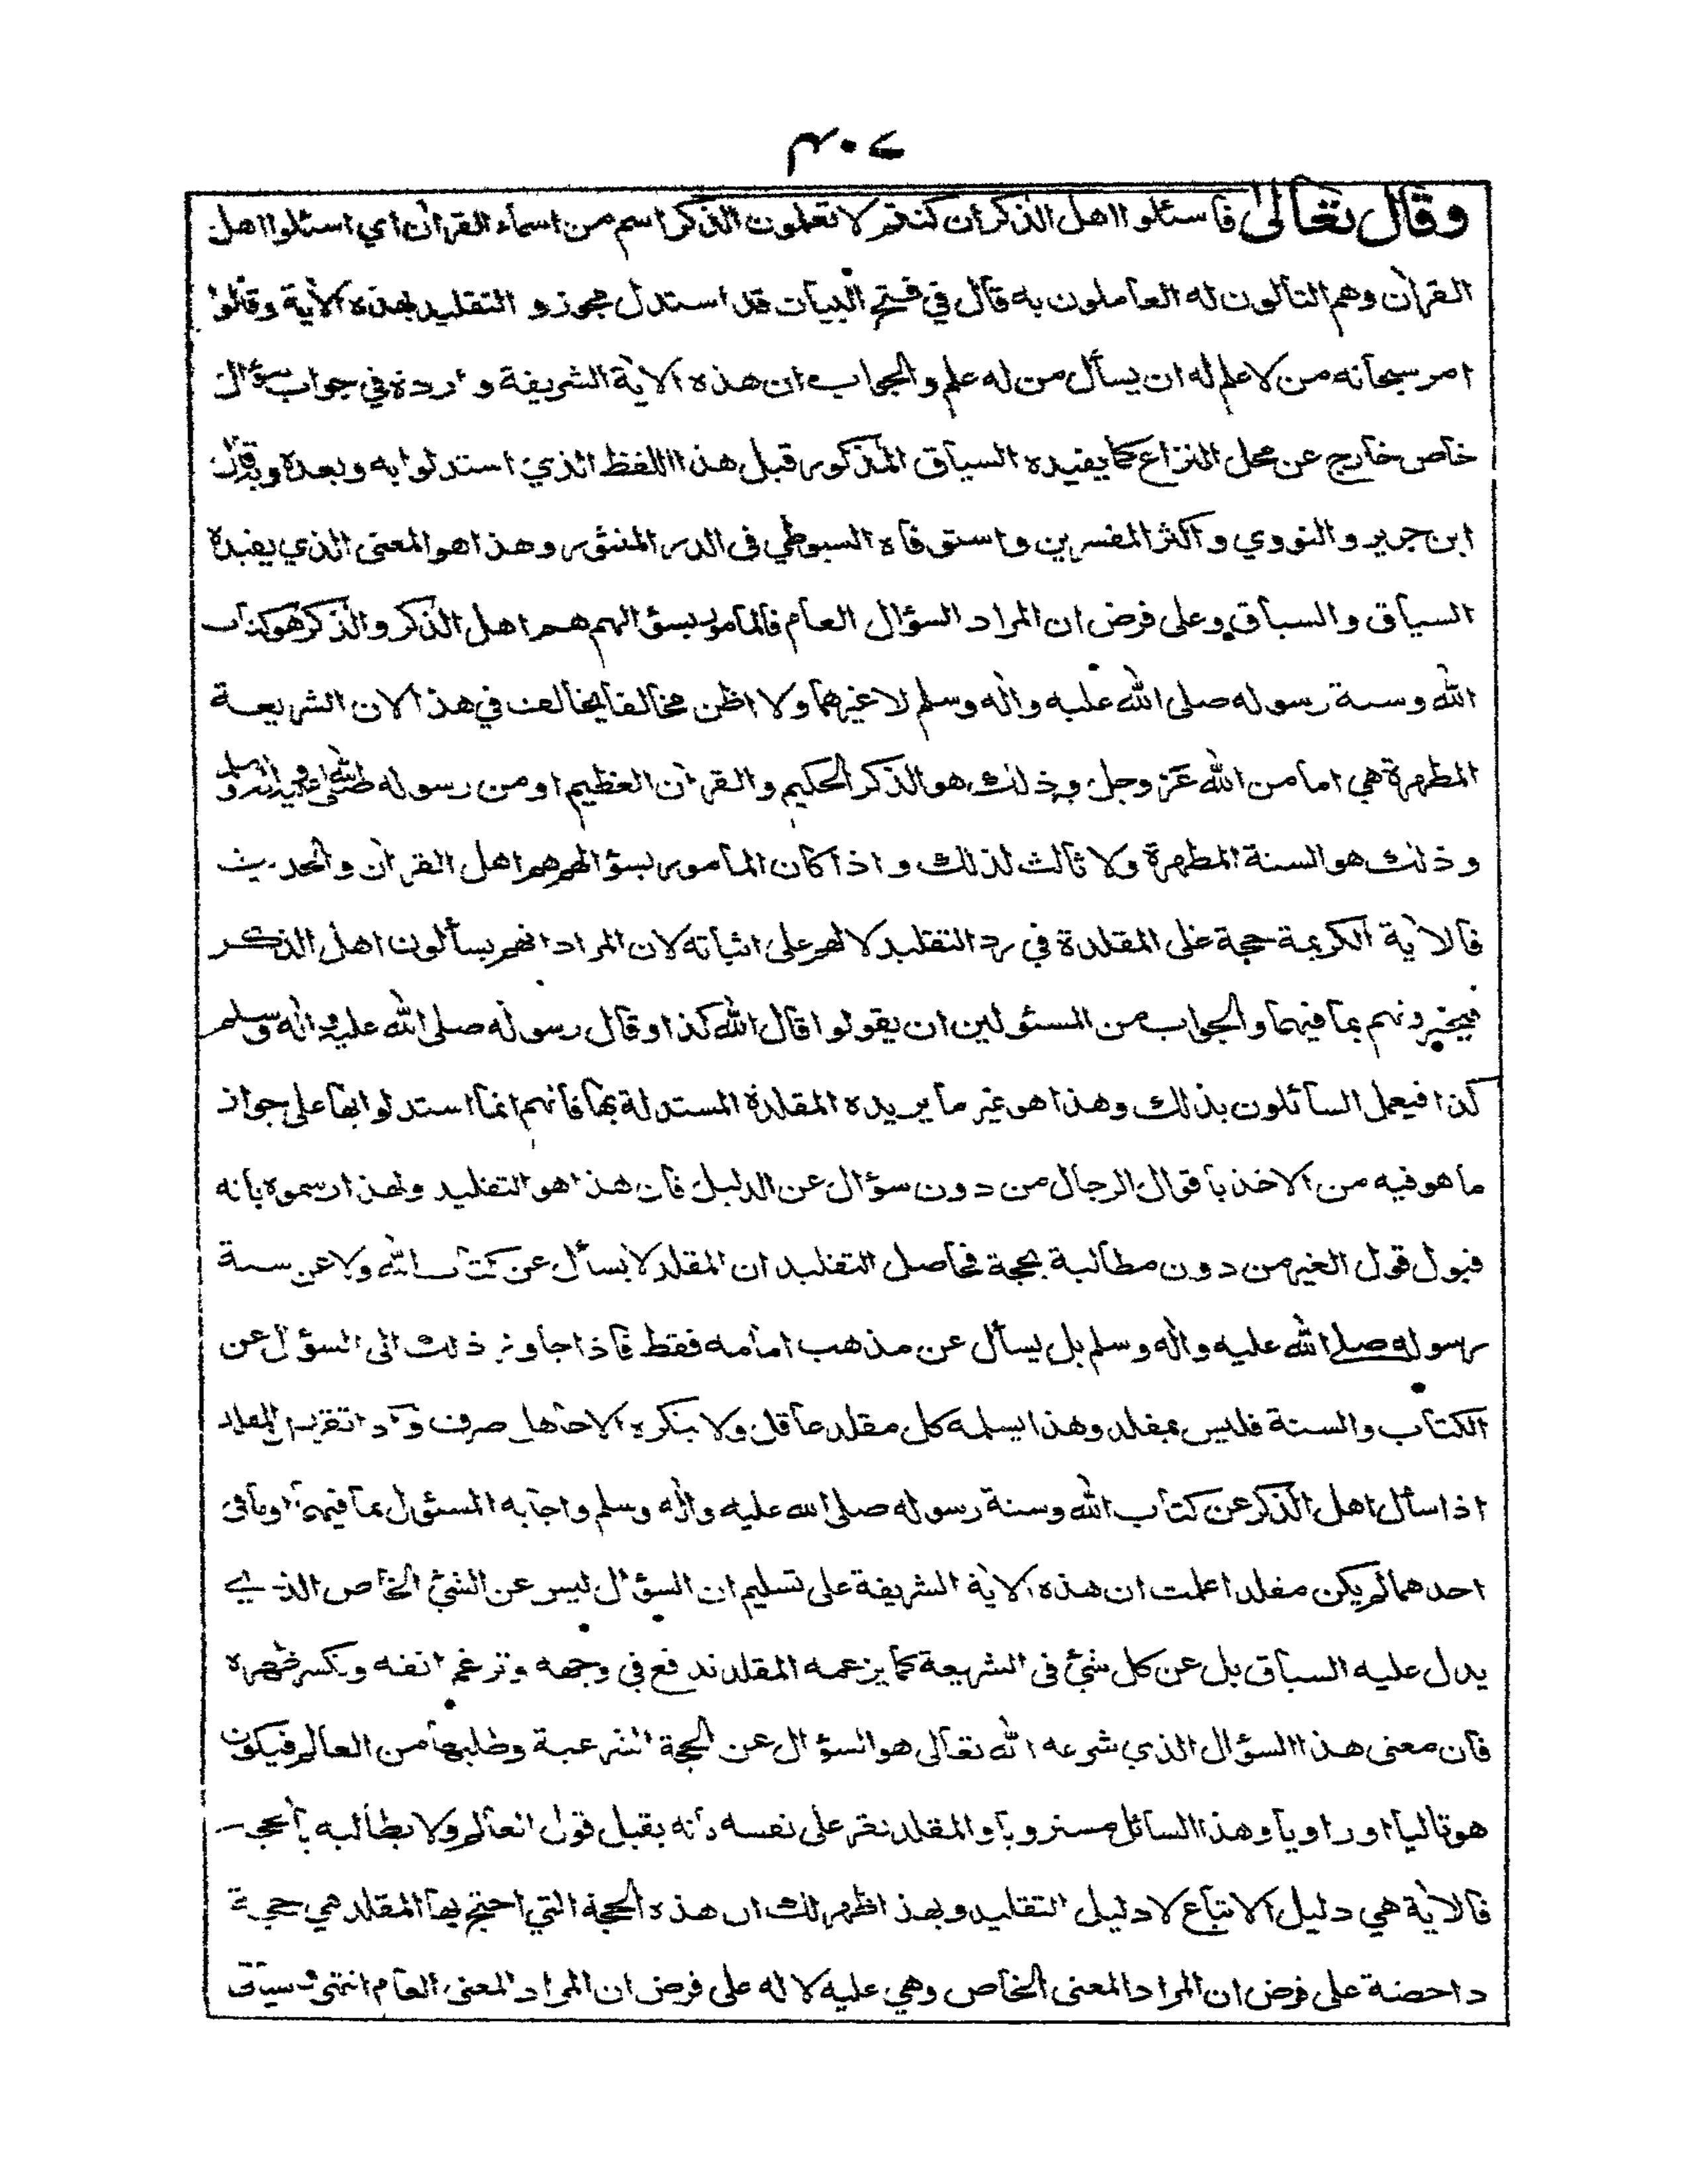 ٤٠٧
وقال تعالى فاسئلوا اهل الذكر ان كنتم لا تعلمون الذكر اسم من اسماء القرآن اي اسئلوا اهل
القرآن وهم التالون له العاملون به قال في فتح البيان قد استدل مجوزو التقليد بهذه الآية وقالوا
امر سبحانه من لا علم له ان يسأل من له علم والجواب ان هذه الآية الشريفة واردة في جواب سؤال
خاص خارج عن محل النزاع كما يفيده السياق المذكور قبل هذا اللفظ الذي استدلوا به وبعده وبه قال
ابن جرير والنووي واكثر المفسرين واستوفاه السيوطي في الدر المنثور وهذا هو المعنى الذي يفيده
السياق والسباق وعلى فرض ان المراد السؤال العام فالمأمور بسؤالهم هم اهل الذكر والذكر هو كتاب
الله وسنة رسوله صلى الله عليه وآله وسلم لا غيرهما ولا اظن مخالفا يخالف في هذا لان الشريعة
المطهرة هي اما من الله عز وجل وذلك هو الذكر الحكيم والقرآن العظيم او من رسوله صلى الله عليه وآله وسلم
وذلك هو السنة المطهرة ولا ثالث لذلك واذا كان المأمور بسؤالهم هم اهل القرآن والحديث
فالآية الكريمة حجة على المقلدة في رد التقليد لا لهم على اثباته لان المراد انهم يسألون اهل الذكر
فيخبرونهم بما فيهما والجواب من المسئولين ان يقولوا قال الله كذا وقال رسوله صلى الله عليه وآله وسلم
كذا فيعمل السائلون بذلك وهذا هو غير ما يريده المقلدة المستدلة بها فانهم انما استدلوا بها على جواز
ما هو فيه من الاخذ باقوال الرجال من دون سؤال عن الدليل فان هذا هو التقليد ولهذا رسموه بانه
قبول قول الغير من دون مطالبة بحجة فحاصل التقليد ان المقلد لا يسأل عن كتاب الله ولا عن سنة
رسوله صلى الله عليه وآله وسلم بل يسأل عن مذهب امامه فقط فاذا جاوز ذلك الى السؤال عن
الكتاب والسنة فليس بمقلد وهذا يسلمه كل مقلد عاقل ولا ينكره الا جاهل صرف واذا تقرر المقلد
اذا سأل اهل الذكر عن كتاب الله وسنة رسوله صلى الله عليه وآله وسلم واجابه المسئول بما فيهما او بما في
احدهما لم يكن مقلدا علمت ان هذه الآية الشريفة على تسليم ان السؤال ليس عن الشئ الخاص الذي
يدل عليه السياق بل عن كل شئ في الشريعة كما يزعمه المقلد تدفع في وجهه وترغم انفه وتكسر ظهره
فان معنى هذا السؤال الذي شرعه الله تعالى هو السؤال عن الحجة الشرعية وطلبها من العالم فيكون
هو تاليا او راويا وهذا السائل مسترويا والمقلد نقر على نفسه بانه يقبل قول العالم ولا يطالبه بالحجة
فالآية هي دليل الاتباع لا دليل التقليد وبهذا اظهر لك ان هذه الحجة التي احتج بها المقلد هي حجة
داحضة على فرض ان المراد المعنى الخاص وهي عليه لا له على فرض ان المراد المعنى العام انتهى وسياق